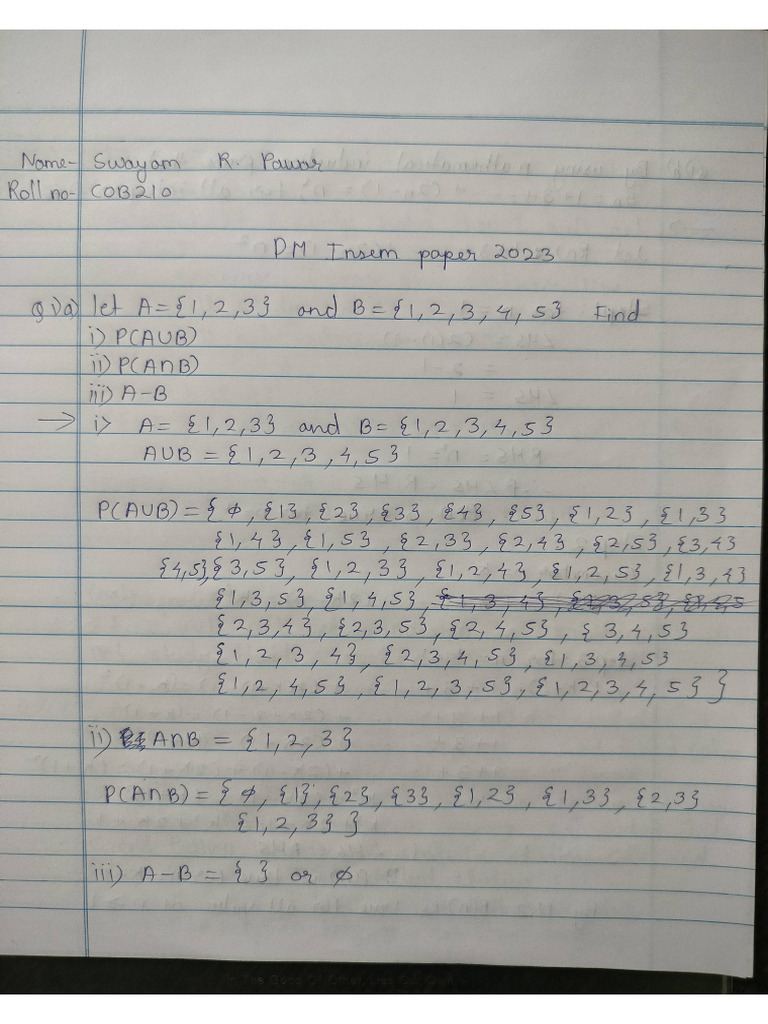 Name- Swayam R. Pawar
Roll no- COB210
DM Insem paper 2023
Q1)a) let A={1,2,3} and B={1,2,3,4,5} Find
i) P(A∪B)
ii) P(A∩B)
iii) A-B
→ i> A= {1,2,3} and B= {1,2,3,4,5}
A∪B = {1,2,3,4,5}
P(A∪B) = { ϕ, {1}, {2}, {3}, {4}, {5}, {1,2}, {1,3}
{1,4}, {1,5}, {2,3}, {2,4}, {2,5}, {3,4}
{4,5},{3,5}, {1,2,3}, {1,2,4}, {1,2,5}, {1,3,4}
{1,3,5}, {1,4,5},
{2,3,4}, {2,3,5}, {2,4,5}, {3,4,5}
{1,2,3,4}, {2,3,4,5}, {1,3,4,5}
{1,2,4,5}, {1,2,3,5}, {1,2,3,4,5} }
ii) A∩B = {1,2,3}
P(A∩B) = { ϕ, {1}, {2}, {3}, {1,2}, {1,3}, {2,3}
{1,2,3} }
iii) A-B = { } or ϕ